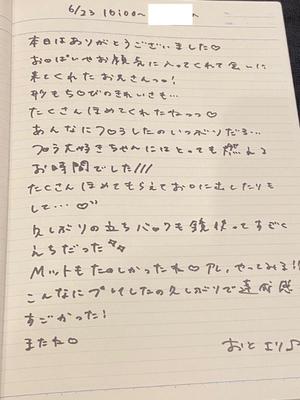 6/23 16:00〜
本日はありがとうございました♡
おっぱいやお顔気に入ってくれて会いに
来てくれたお兄さんっ!
形もちくびのきれいさも…
たくさんほめてくれたねっっ♡
あんなにフロうしたのいつぶりだろ…
フロう大好きちゃんにはとっても燃える
お時間でした///
たくさんほめてもらえてお口に出したりも
して…♡
久しぶりの立ちバックも鏡使ってすごく
えちだった
Mットもたのしかったね♡アレ、やってみる!!
こんなにプレイしたの久しぶりで達成感
すごかった!
またね♡
おと